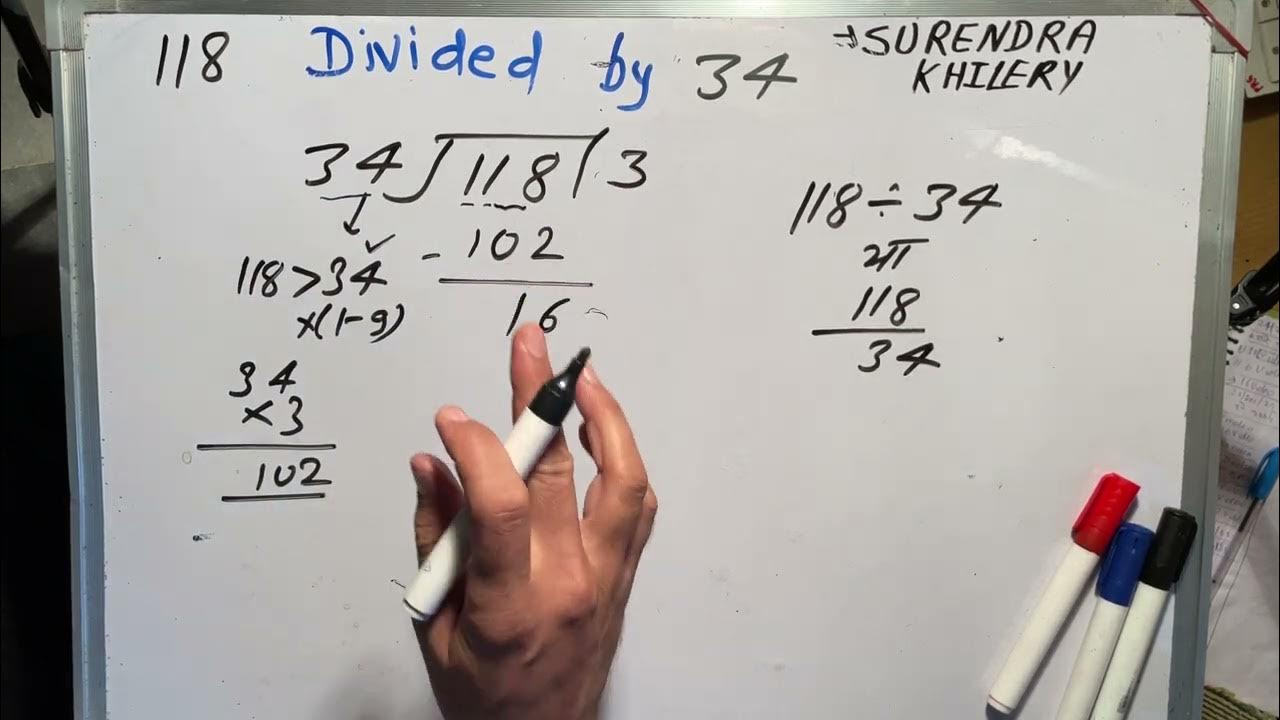 118 Divided by 34
→SURENDRA
KHILERY
34 118 3
- 102
16
118>34 ✓
×(1-9)
34
×3
102
118÷34
या
118
34